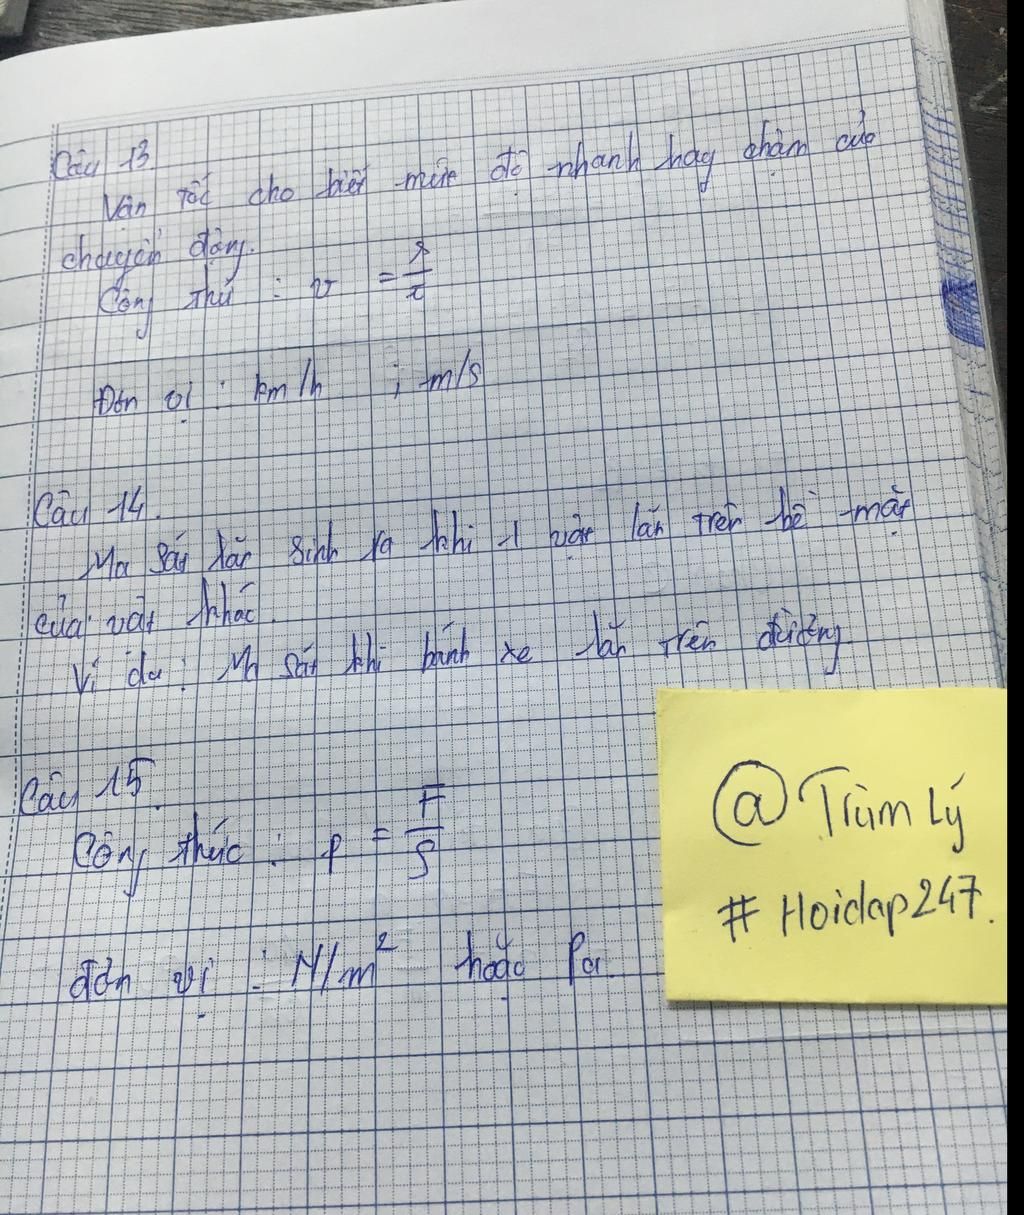 Câu 13
Vận tốc cho biết mức độ nhanh hay chậm của
chuyển động.
Công thứ : v = s/t
Đơn vị : km/h ; m/s
Câu 14.
Ma sát lăn sinh ra khi 1 vật lăn trên bề mặt
của vật khác.
Ví dụ : Ma sát khi bánh xe lăn trên đường
Câu 15.
Công thức : p = F/S
đơn vị : N/m² hoặc Pa
@ Trùm Lý
# Hoidap247.